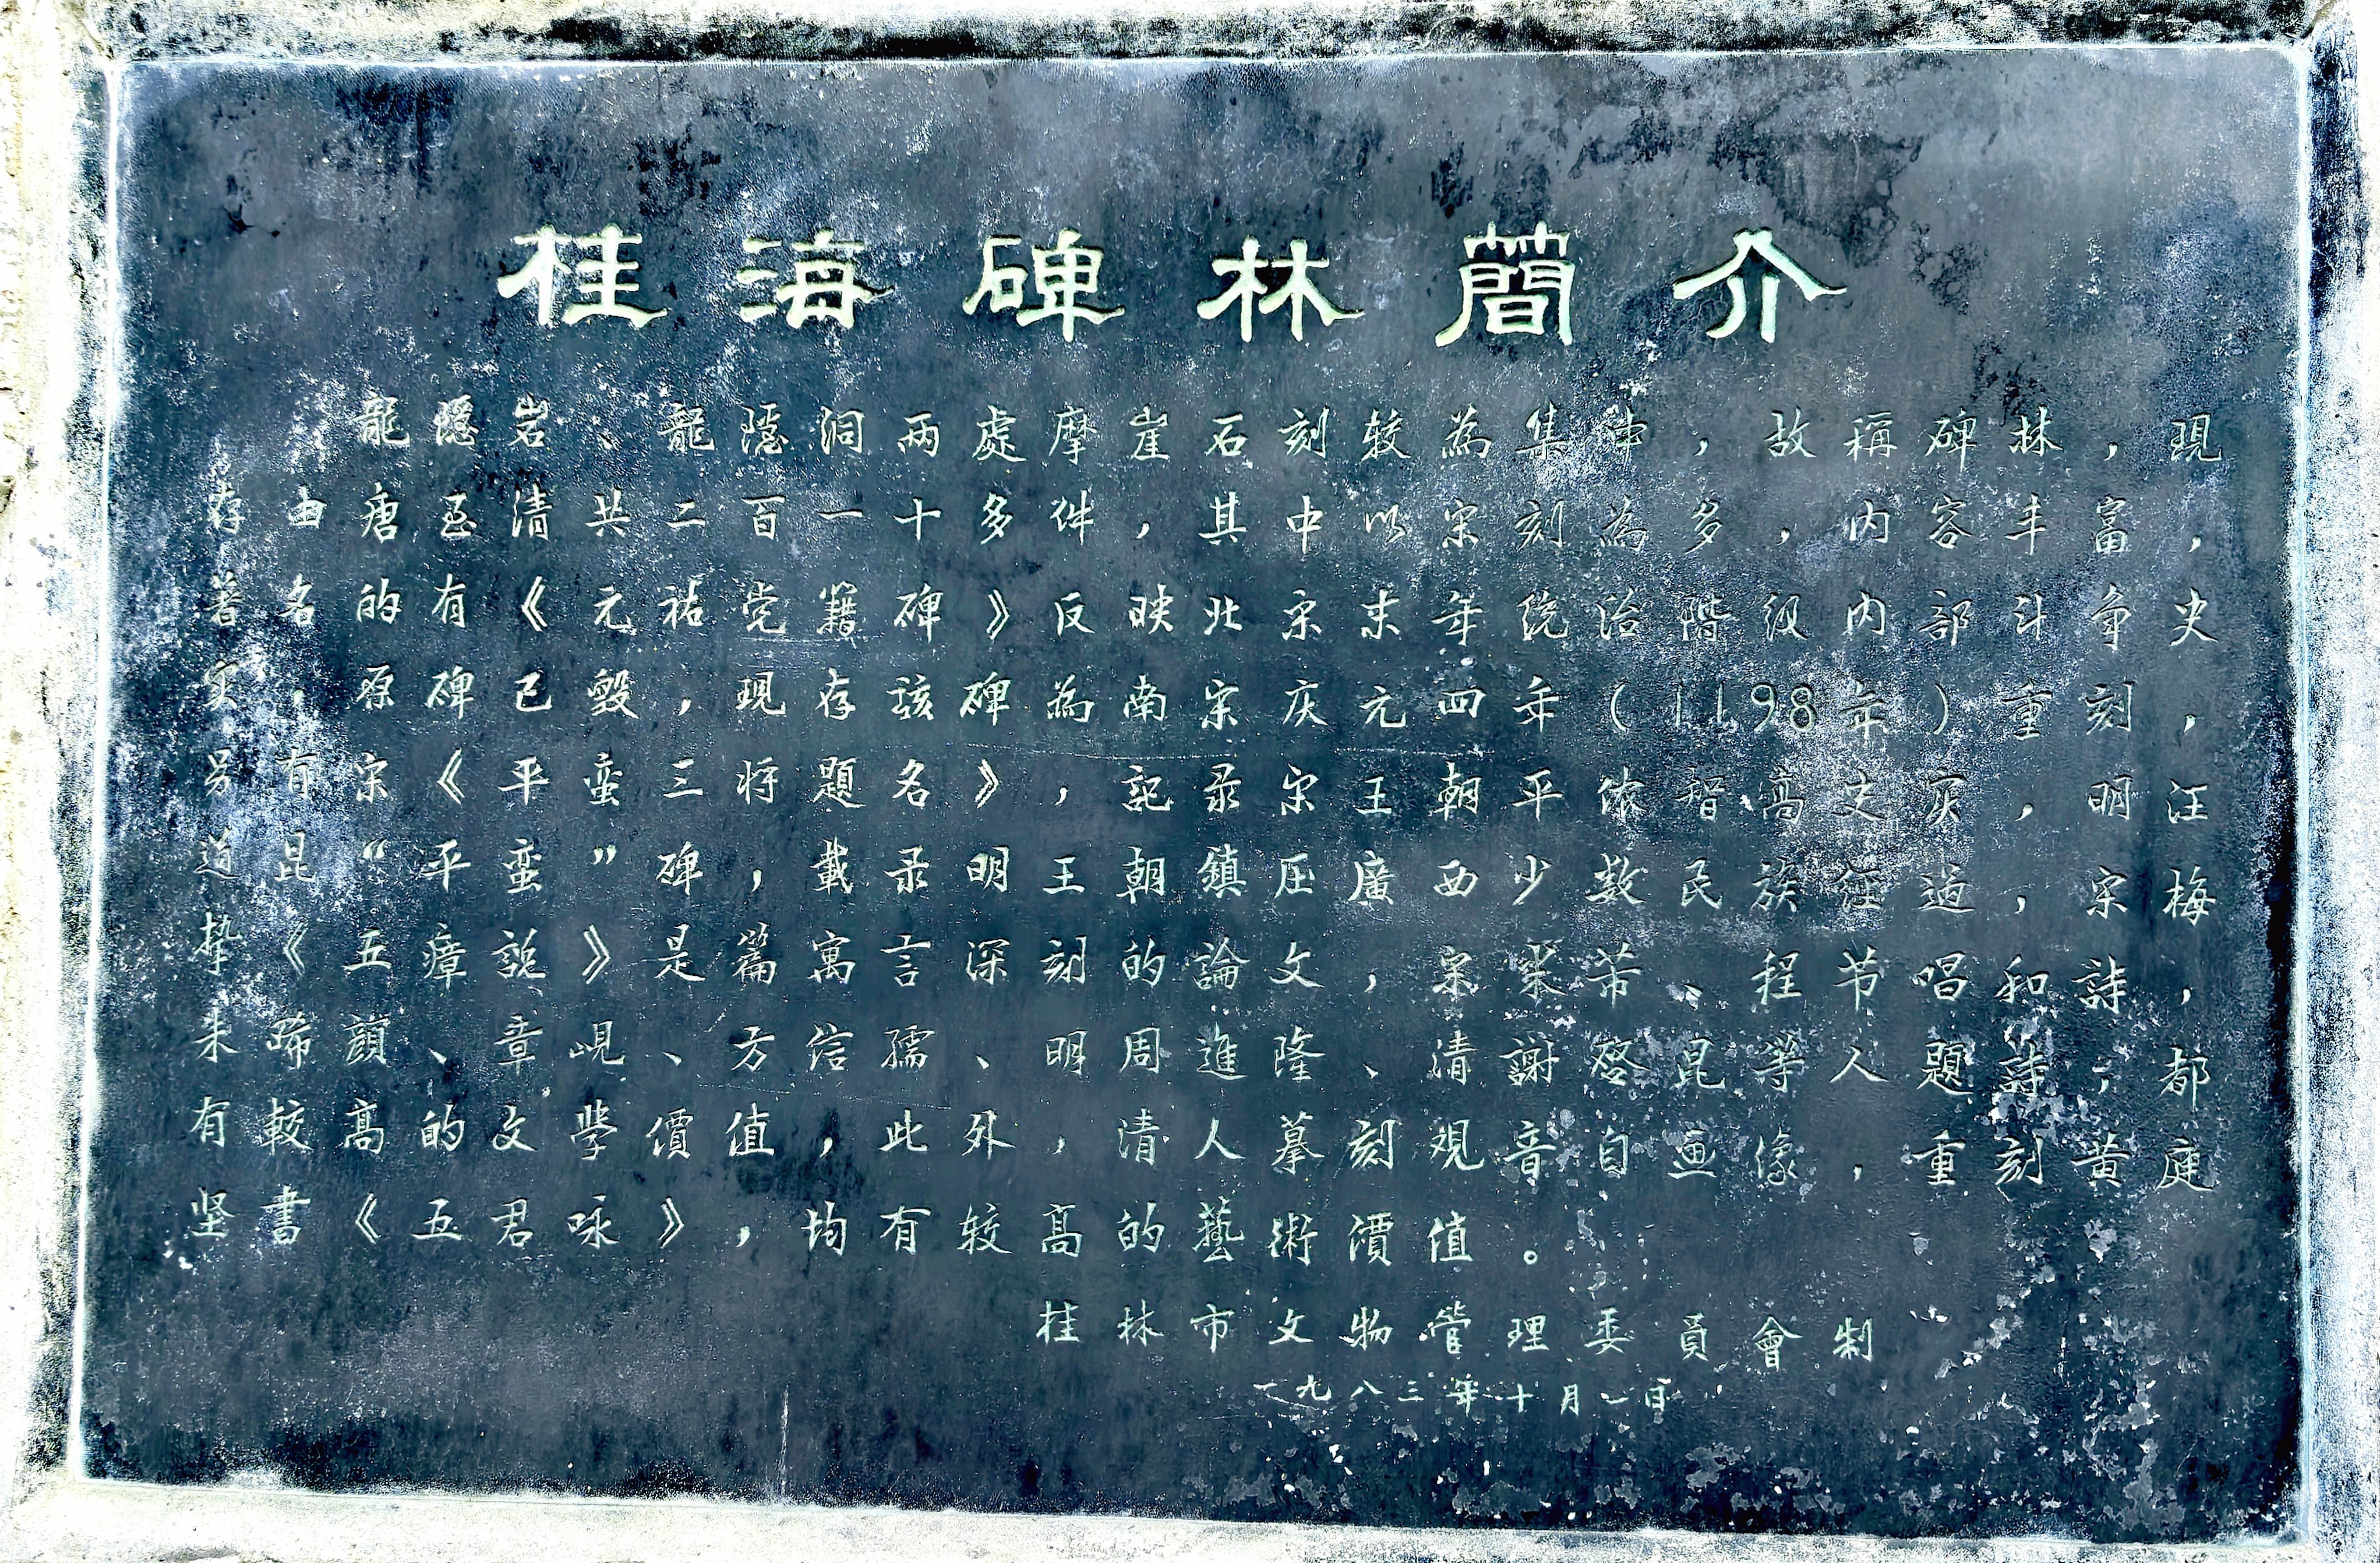 桂海碑林簡介
龍隱岩、龍隱洞兩處摩崖石刻较為集中，故稱碑林，現
存由唐至清共二百一十多件，其中以宋刻為多，内容丰富，
著名的有《元祐党籍碑》反映北宋末年统治階级内部斗争史
实，原碑已毀，現存該碑為南宋庆元四年(1198年)重刻，
另有宋《平蛮三将題名》，記录宋王朝平侬智高之灾，明汪
道昆“平蛮”碑，載录明王朝鎮压廣西少数民族经過，宋梅
挚《五瘴説》是篇寓言深刻的論文，宋 芾、程节唱和詩，
朱晞顔、章峴、方信孺、明周進隆、清謝啓昆等人題詩，都
有較高的文學價值，此外，清人摹刻观音自画像，重刻黄庭
坚書《五君咏》，均有较高的藝術價值。
桂林市文物管理委員會制
一九八三年十月一日